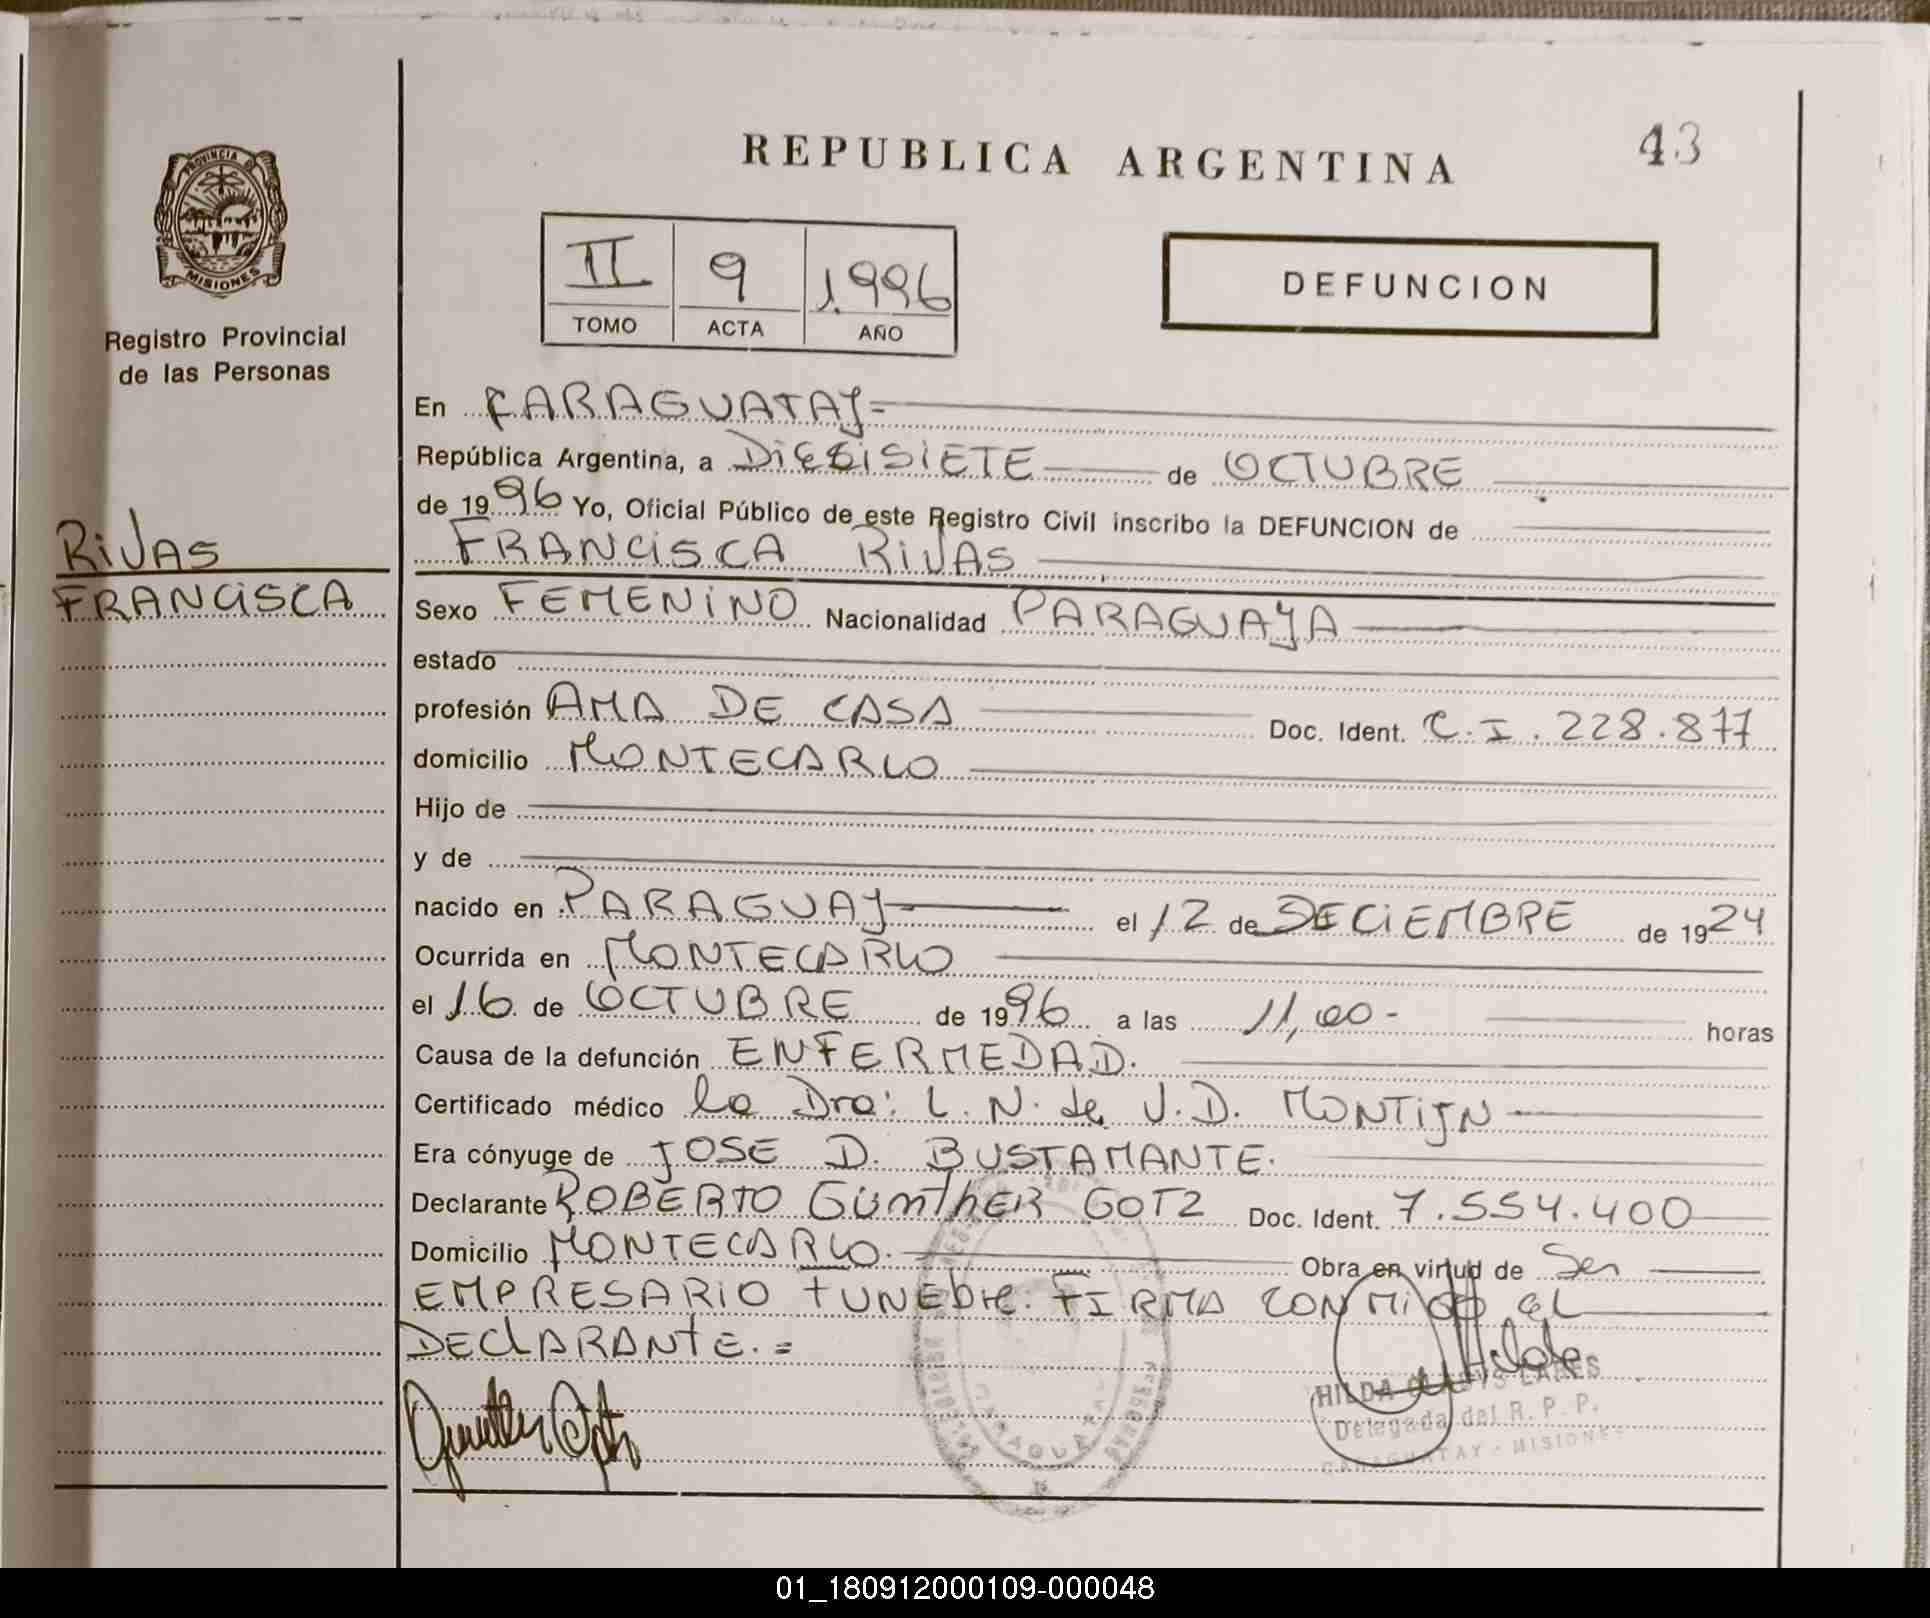 REPUBLICA ARGENTINA
43
PROVINCIA D
MISIONES
Registro Provincial
de las Personas
II 9 1.996
TOMO ACTA AÑO
DEFUNCION
RIVAS
FRANCISCA
En CARAGUATAY=
República Argentina, a DIESISIETE de OCTUBRE
de 1996 Yo, Oficial Público de este Registro Civil inscribo la DEFUNCION de
FRANCISCA RIVAS
Sexo FEMENINO Nacionalidad PARAGUAYA
estado
profesión AMA DE CASA Doc. Ident. C.I. 228.877
domicilio MONTECARLO
Hijo de
y de
nacido en PARAGUAY el 12 de DECIEMBRE de 1924
Ocurrida en MONTECARLO
el 16 de OCTUBRE de 1996 a las 11,00- horas
Causa de la defunción ENFERMEDAD.
Certificado médico la Dra: L. N. de V. D. MONTIJN
Era cónyuge de JOSE D. BUSTAMANTE.
Declarante ROBERTO GUNTHER GOTZ Doc. Ident. 7.554.400
Domicilio MONTECARLO. Obra en virtud de Ser
EMPRESARIO FUNEbre. FIRMA CONMIGO EL
DECLARANTE.=
HILDA LARES
Delegada del R. P. P.
CARAGUATAY - MISIONES
01_180912000109-000048